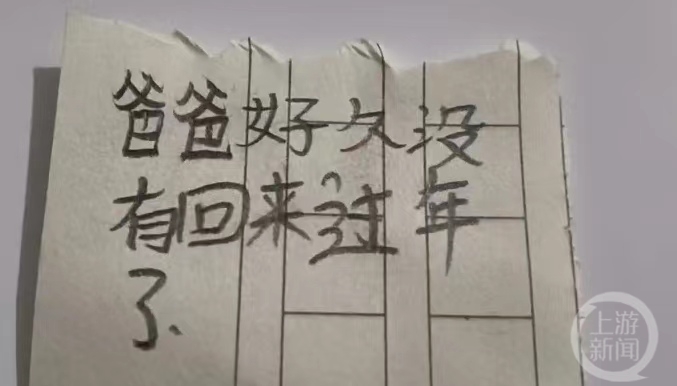 爸爸好久没
有回来过年
了.
上游
新闻